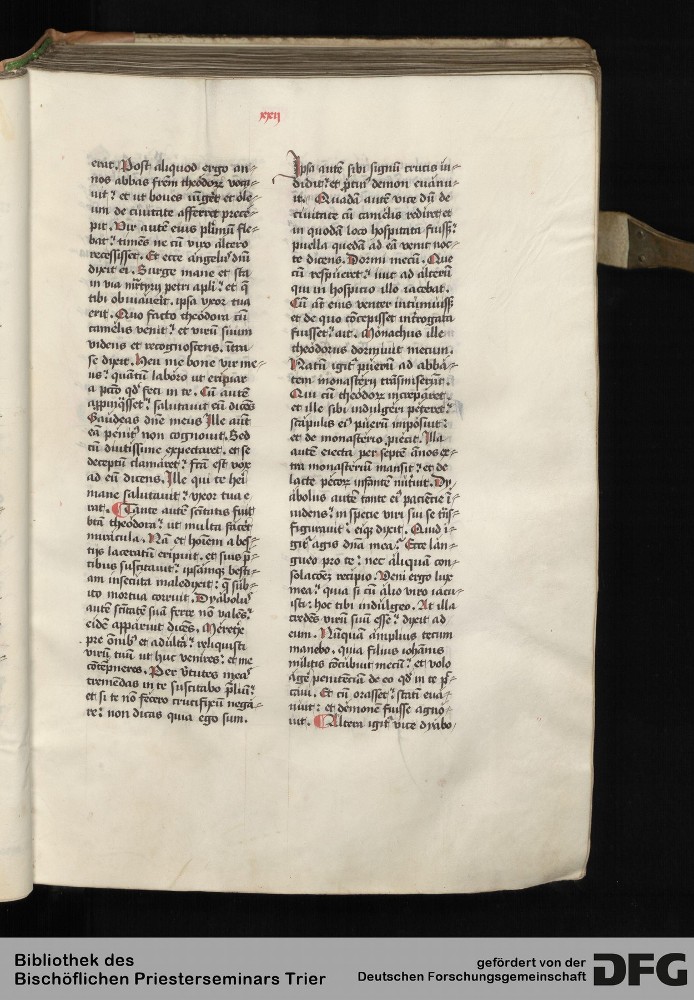 xxij
erat. Post aliquod ergo an⸗
nos abbas frēm theodorꝫ voca⸗
uit ⁊ et ut boues iūgeret et ole⸗
um de ciuitate afferret prece⸗
pit. Vir autē eius plimū fle⸗
bat ⁊ timēs ne cū viro altero
recessisset. Et ecce angelꝰ dnī
dixit ei. Surge mane et sta
in via mr̄tyrij petri apłi ⁊ et q̄
tibi obuiauerit. ipsa vxor tua
erit. Quo facto theodora cū
camelis venit ⁊ et virū suum
videns et recognoscens. ītra
se dixit. Heu me bone vir me⸗
us ⁊ quantū laboro ut eripiar
a pctō qd̓ feci in te. Cū autē
appinq̄sset ⁊ salutauit eū dicēs
Gaudeas dn̄e meus Ille aūt
eā penitꝰ non cognouit. Sed
cū diutissime expectaret. et se
deceptū clamaret ⁊ fc̄a est vox
ad eū dicens. Ille qui te heri
mane salutauit ⁊ vxor tua e⸗
rat. Tante autē scītatis fuit
btā theodora ⁊ ut multa facet̄
miracula. Nā et hoīem a bes⸗
tijs laceratū eripuit. et suis p̄⸗
cibus suscitauit ⁊ ipsāmqꝫ besti⸗
am insecuta maledixit ⁊ q̄ sub⸗
ito mortua corruit. Dyabolꝰ
autē scītatē suā ferre nō valēs ⁊
eidē apparuit dicēs. Meretꝛix
pre om̄ibꝰ et adultā ⁊ reliquisti
virū tuū ut huc venires ⁊ et me
cōtēpneres. Per v̓tutes meas
tremēdas in te suscitabo p̄liū ⁊
et si te nō fecero crucifixū nega⸗
re ⁊ non dicas quia ego sum.
Ipsa autē sibi signū crucis in⸗
didit ⁊ et ptin̄ demon euanu⸗
it. Quadā autē vice dū de
ciuitate cū camelis rediret et
in quodā loco hospitata fuiss̄ ⁊
puella quedā ad eā venit noc⸗
te dicens. Dormi mecū. Que
cū respueret ⁊ iuit ad alterū
qui in hospicio illo iacebat.
Cū at̄ eius venter intumuiss̄
et de quo cōcepisset introgata
fuisset ⁊ ait. Monachus ille
theodorus dormiuit mecum.
Natū igit̄ puerū ad abba⸗
tem monasterij trāsmiserūt.
Qui cū theodorꝫ increparet.
et ille sibi indulgeri peteret ⁊
scapulis eiꝰ puerū imposuit ⁊
et de monasterio piecit. Illa
autē eiecta per septē ānos ex⸗
tra monasteriū mansit ⁊ et de
lacte pecorꝫ infantē nutriuit. Dy⸗
abolus autē tante eiꝰ paciētie ī⸗
uidens ⁊ in specie viri sui se tn̄s⸗
figurauit ⁊ eiqꝫ dixit. Quid i⸗
git̄ agis dn̄a mea ⁊ Ecce lan⸗
gueo pro te ⁊ nec aliquam con⸗
solacōeꝫ recipio. Veni ergo lux
mea ⁊ quia si cū alio viro iacu⸗
isti ⁊ hoc tibi indulgeo. At illa
credēs virū suū esse ⁊ dixit ad
eum. Nūquā amplius tecum
manebo. quia filius iohānis
militis cōcubuit mecū ⁊ et volo
agē penitenciā de eo qd̓ in te p̄⸗
caui. Et cū orasset ⁊ statī eua⸗
nuit ⁊ et demonē fuisse agno⸗
uit. Altera igit̄ vice dyabo⸗
Bibliothek des
Bischöflichen Priesterseminars Trier
gefördert von der
Deutschen Forschungsgemeinschaft
DFG